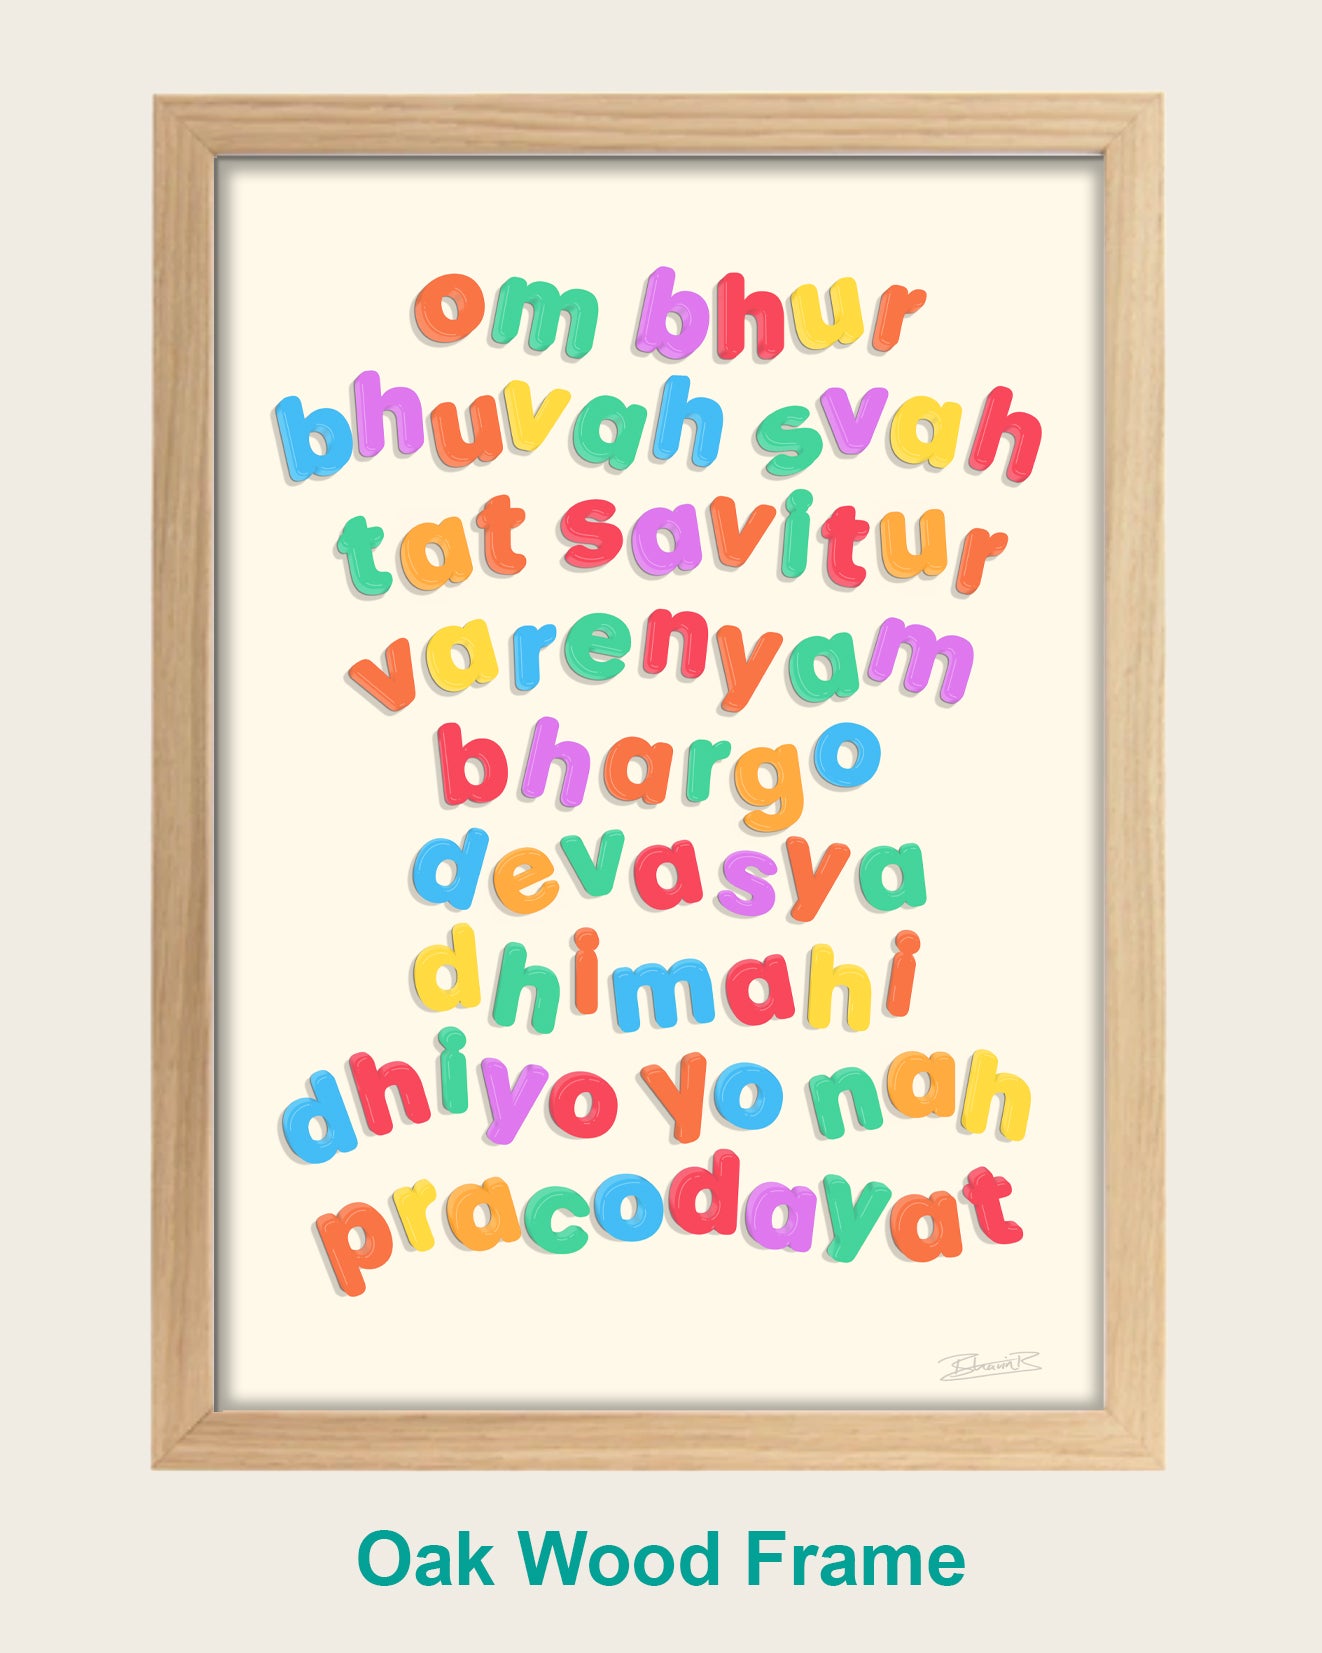 om bhur
bhuvah svah
tat savitur
varenyam
bhargo
devasya
dhimahi
dhiyo yo nah
pracodayat
BhavinB
Oak Wood Frame